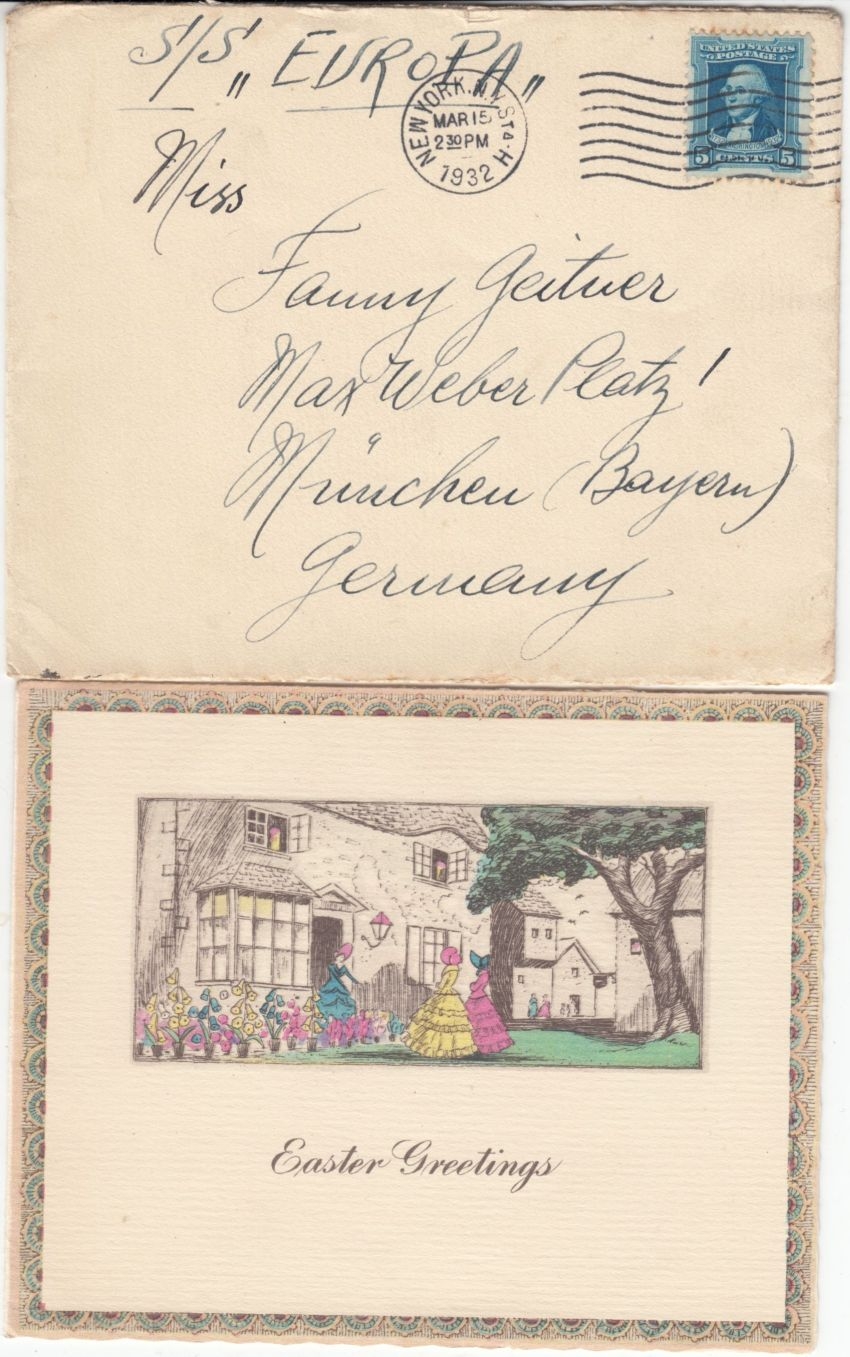 S/S „EUROPA"
NEW YORK, N.Y. STA. H
MAR 15
2 30 PM
1932
UNITED STATES
POSTAGE
5 CENTS 5
Miss
Fanny Geitner
Max Weber Platz 1
München (Bayern)
Germany
Easter Greetings